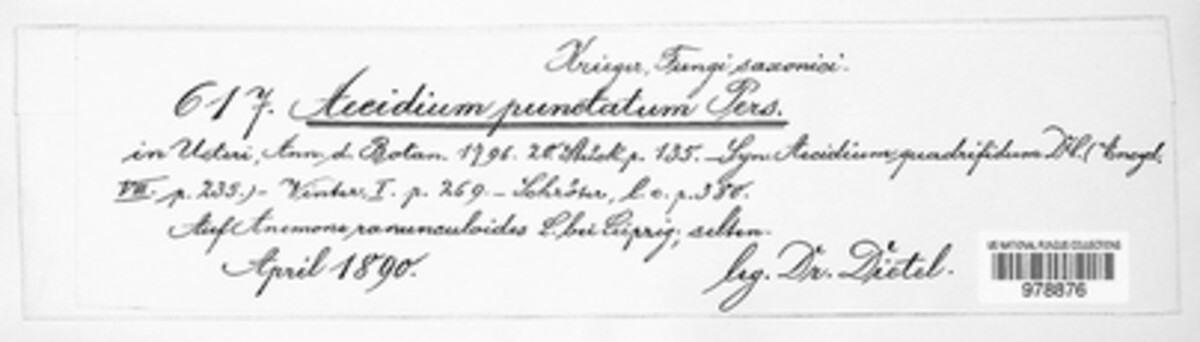 Krieger, Fungi saxonici.
617. Aecidium punctatum Pers.
in Usteri, Ann. d. Botan. 1796. 20. Stück p. 135. – Syn. Aecidium quadrifidum DC. (Encycl.
VIII. p. 235.) – Winter, I. p. 269. – Schröter, l. c. p. 380.
Auf Anemone ranunculoides L. bei Leipzig; selten.
April 1890.
leg. Dr. Dietel.
US NATIONAL FUNGUS COLLECTIONS
978876